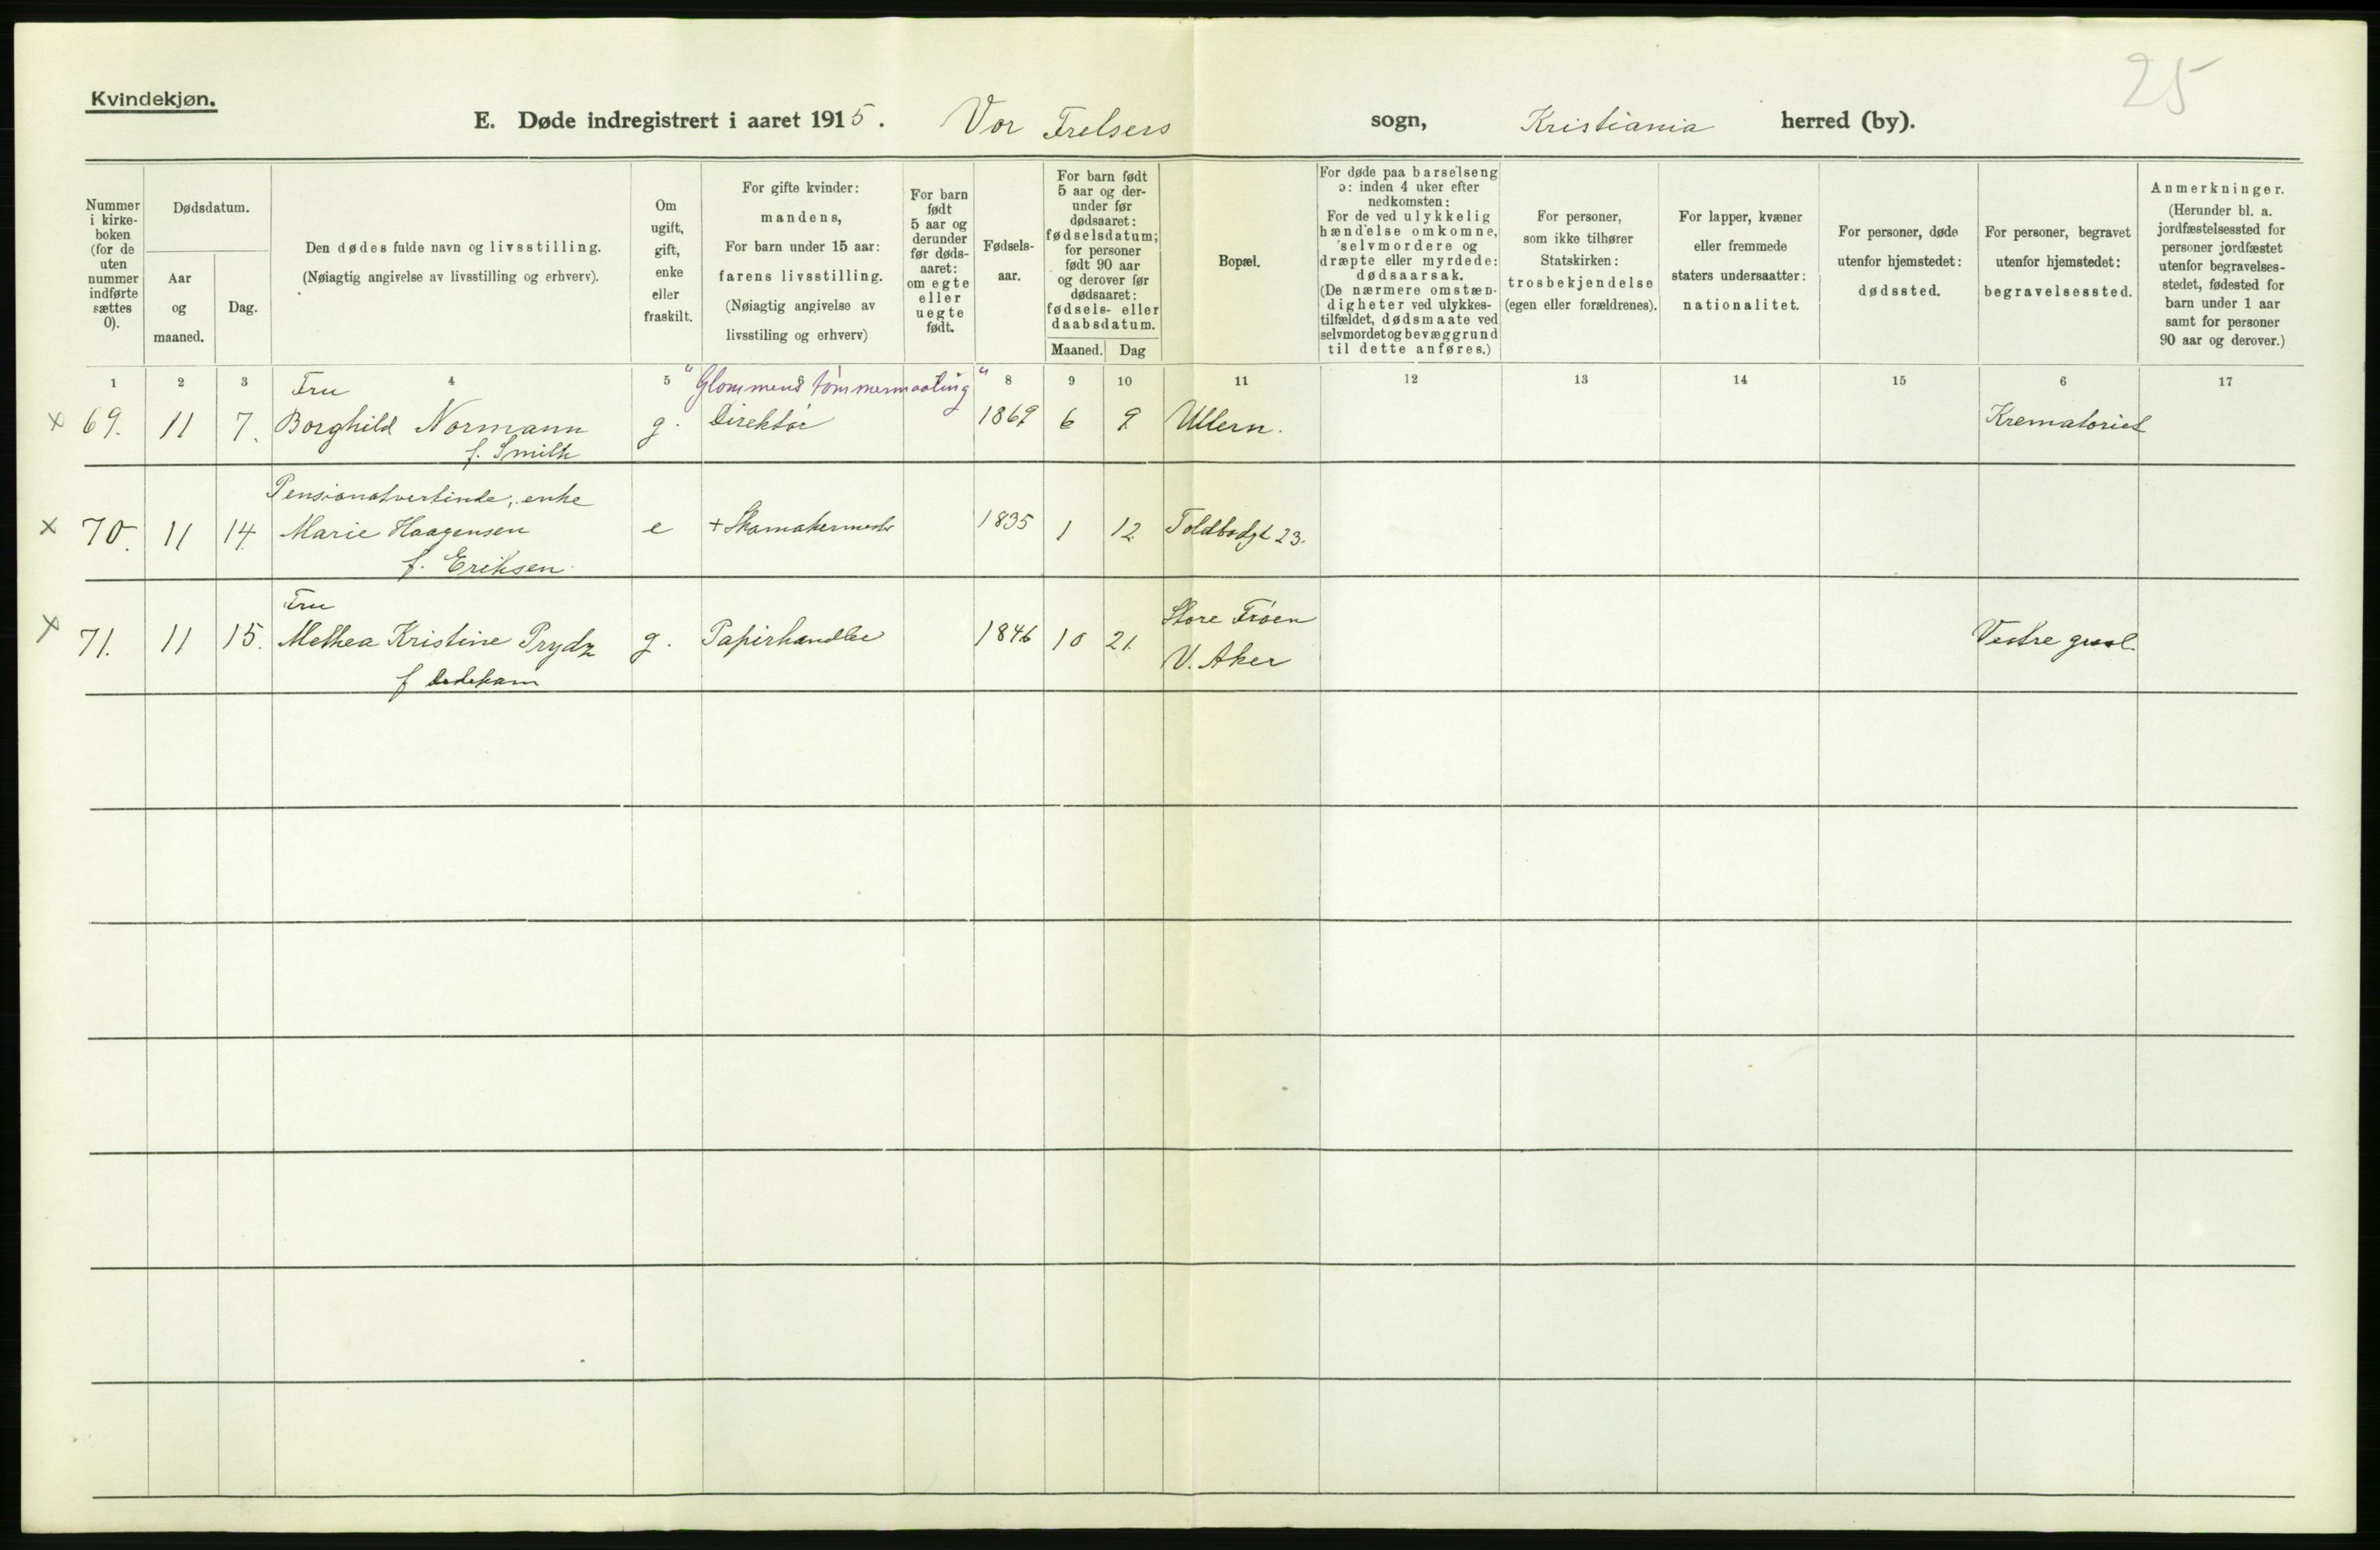 25
Kvindekjøn.
E. Døde indregistrert i aaret 1915. Vor Frelsers sogn, Kristiania herred (by).
Nummer
i kirke-
boken
(for de
uten
nummer
indførte
sættes
0).
Dødsdatum.
Aar
og
maaned.
Dag.
Den dødes fulde navn og livsstilling.
(Nøiagtig angivelse av livsstilling og erhverv).
Om
ugift,
gift,
enke
eller
fraskilt.
For gifte kvinder:
mandens,
For barn under 15 aar:
farens livsstilling.
(Nøiagtig angivelse av
livsstiling og erhverv)
For barn
født
5 aar og
derunder
før døds-
aaret:
om egte
eller
uegte
født.
Fødsels-
aar.
For barn født
5 aar og der-
under før
dødsaaret:
fødselsdatum;
for personer
født 90 aar
og derover før
dødsaaret:
fødsels- eller
daabsdatum.
Maaned. Dag
Bopæl.
For døde paa barselseng
ɔ: inden 4 uker efter
nedkomsten:
For de ved ulykkelig
hændelse omkomne,
selvmordere og
dræpte eller myrdede:
dødsaarsak.
(De nærmere omstæn-
digheter ved ulykkes-
tilfældet, dødsmaate ved
selvmordet og bevæggrund
til dette anføres.)
For personer,
som ikke tilhører
Statskirken:
trosbekjendelse
(egen eller forældrenes).
For lapper, kvæner
eller fremmede
staters undersaatter:
nationalitet.
For personer, døde
utenfor hjemstedet:
dødssted.
For personer, begravet
utenfor hjemstedet:
begravelsessted.
Anmerkninger.
(Herunder bl. a.
jordfæstelsessted for
personer jordfæstet
utenfor begravelses-
stedet, fødested for
barn under 1 aar
samt for personer
90 aar og derover.)
1 2 3 4 5 6 7 8 9 10 11 12 13 14 15 6 17
Fru "Glommens tømmermaaling"
x 69. 11 7. Borghild Normann g. Direktør 1869 6 9 Ullern. Krematoriet
f. Smith
Pensionatvertinde, enke
x 70. 11 14. Marie Haagensen e + Skomakermester 1835 1 12 Toldbodgt 23.
f. Eriksen
Fru Store Frøen
x 71. 11 15. Methea Kristine Prydz g. Papirhandler 1846 10 21. V. Aker Vestre gravl.
f Dedekam